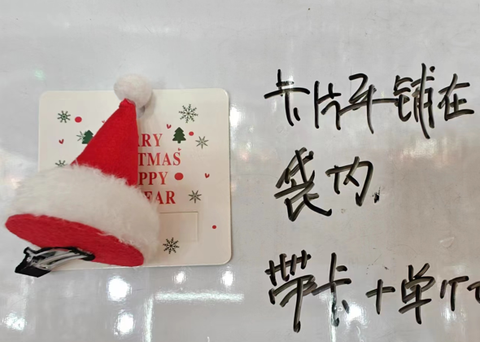 RRY
TMAS
PPY
EAR
卡片平铺在
袋内.
带卡+单个